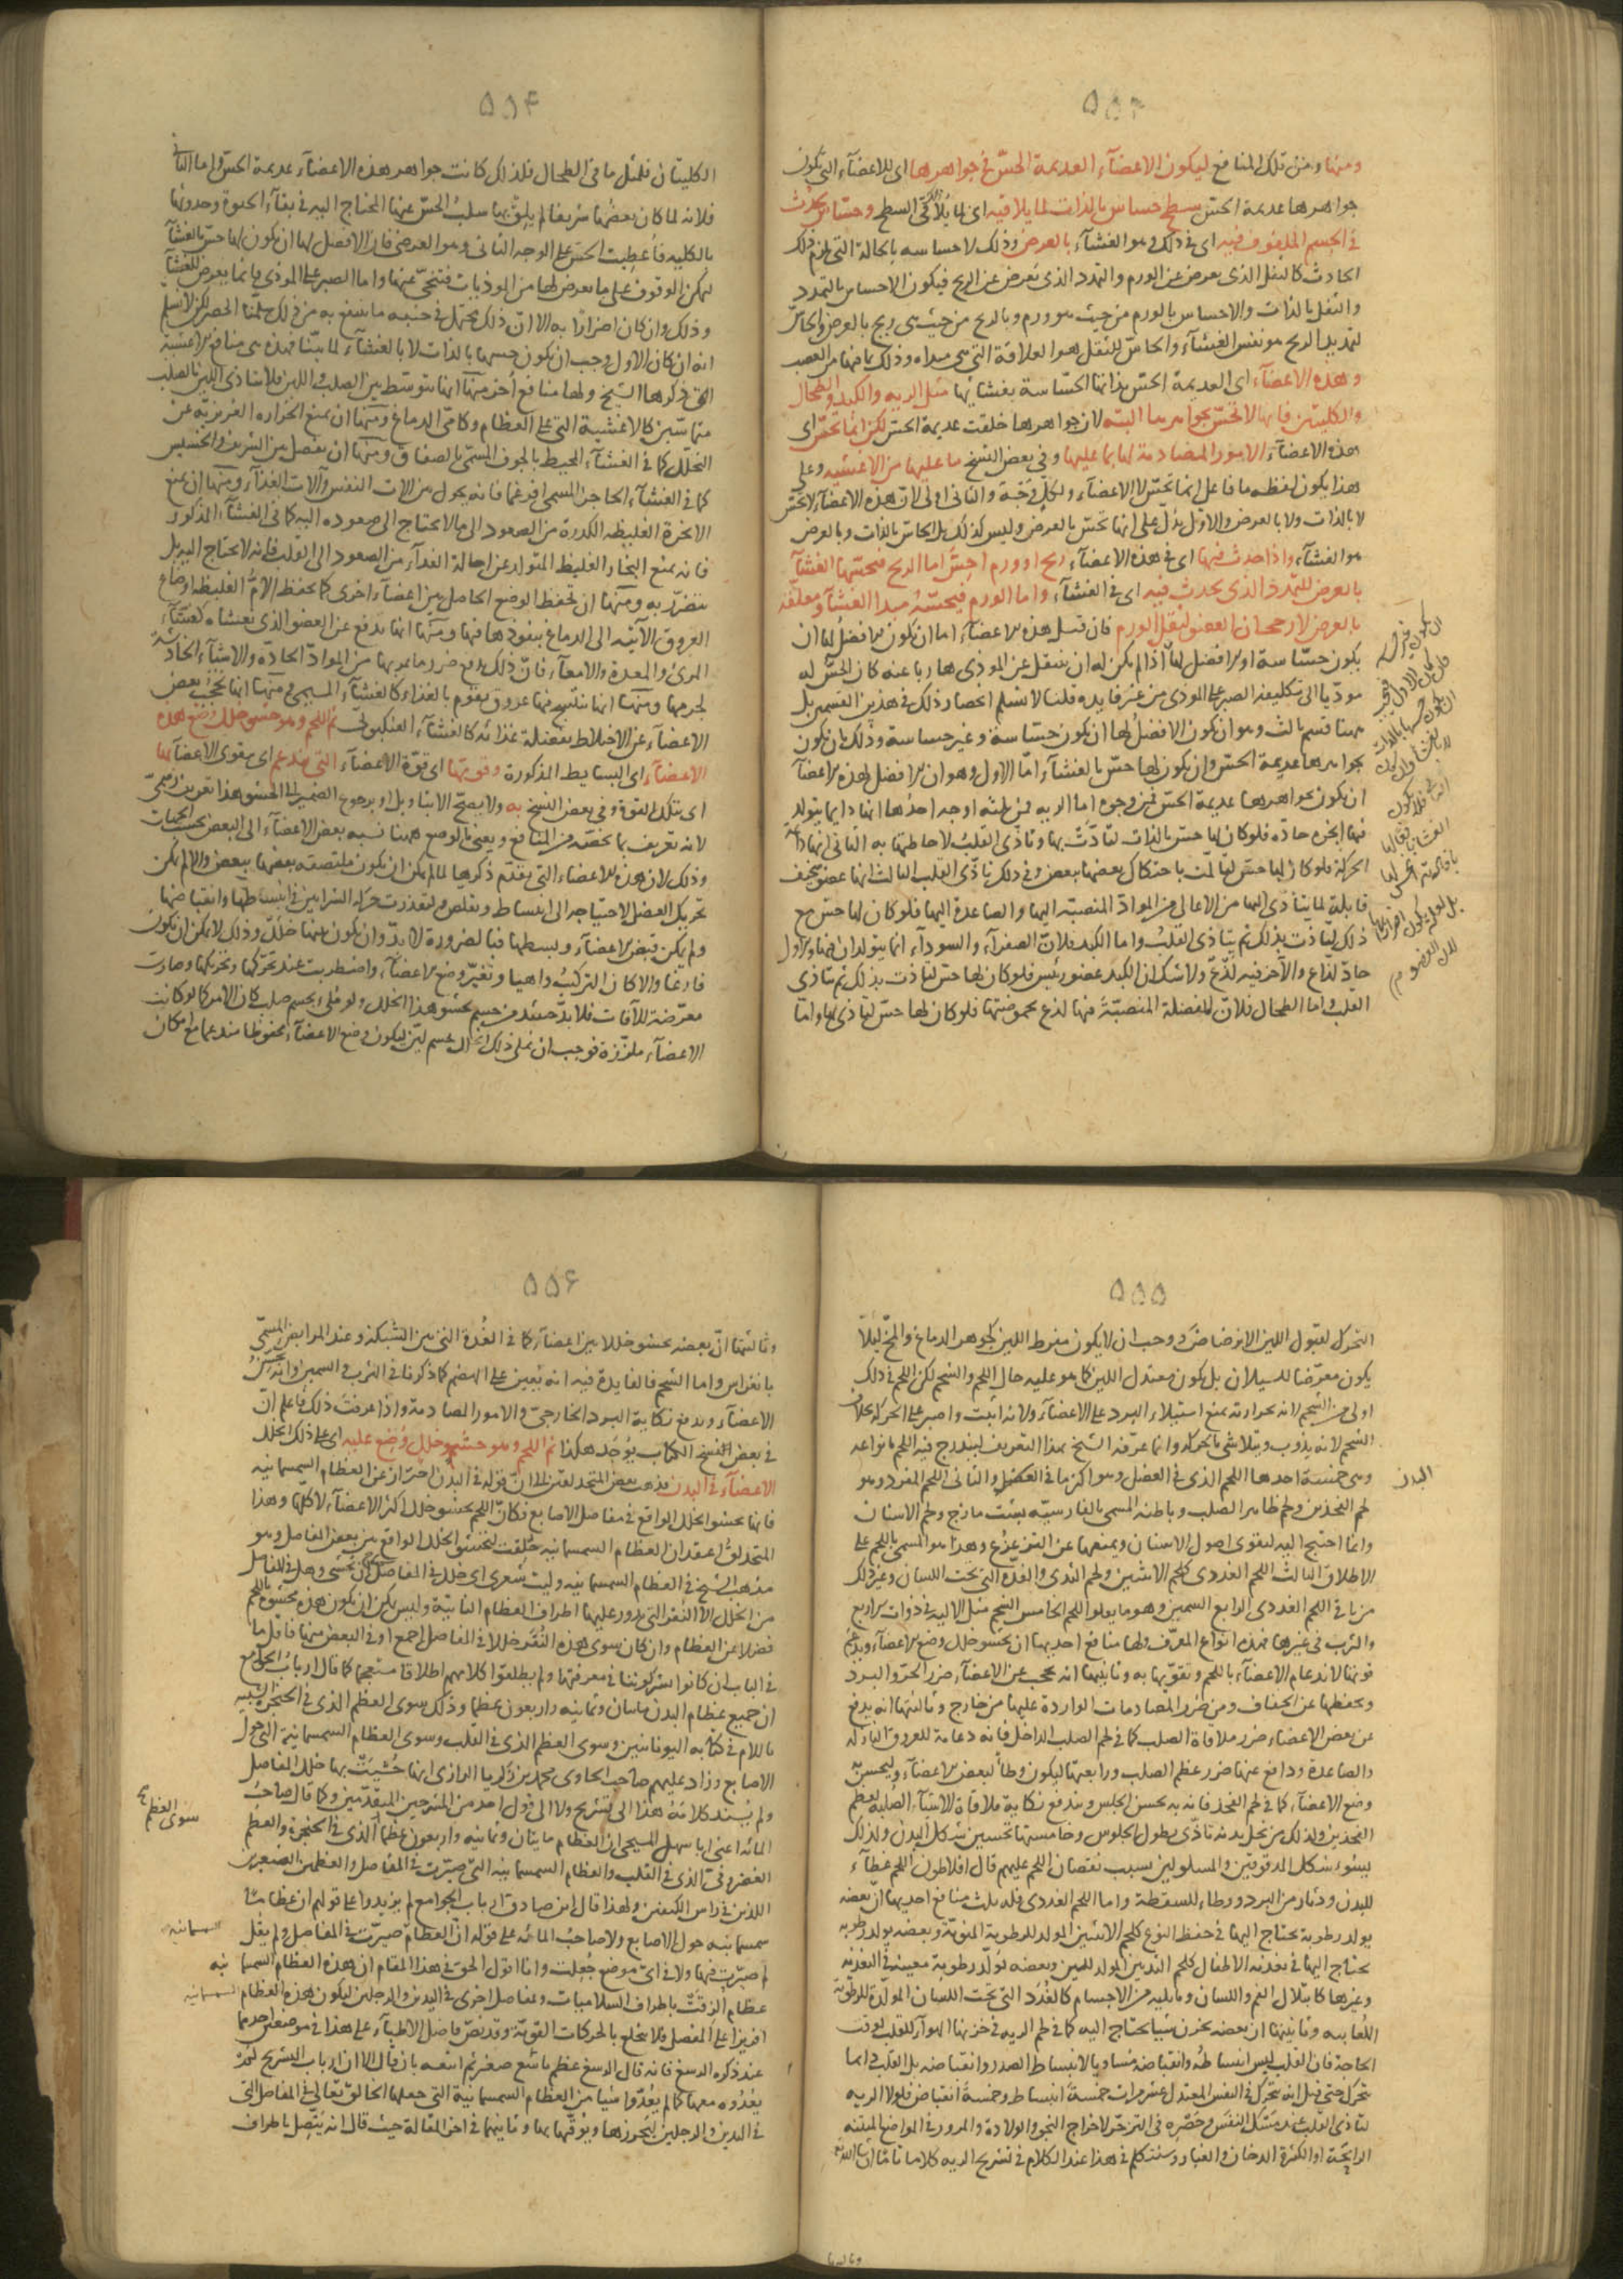 ٥٥٣
ومنها ومن تلك المنافع ليكون الاعضآء العديمة الحسّ فى جواهرها اى للاعضآء التى تكون
جواهرها عديمة الحسّ سطح حساس بالذات لما يلاقيه اى لما يلاقى السطح وحساس بما يحدث
فى الجسم الملفوف فيه اى فى ذلك وهو الغشآء بالعرض وذلك لاحساسه بالحالة التى تلزم ذلك
الحادث كالثقل الذى يعرض عن الورم والتمدد الذى يعرض عن الريح فيكون الاحساس بالتمدد
والثقل بالذات والاحساس بالورم من حيث هو ورم وبالريح من حيث هى ريح بالعرض والحاسّ
لتمديد الريح هو نفس الغشآء والحاسّ للثقل هو العلاقة التى هى مبداه وذلك بما فيها من العصب
وهذه الاعضآء اى العديمة الحسّ بذاتها الحسّاسة بغشايها مثل الريه والكبد والطحال
والكليتين فانها لا تحسّ بجواهرها البتة لان جواهرها خلقت عديمة الحسّ لكن انما تحسّ اى
هذه الاعضآء الامور المصادمة لها بما عليها وفى بعض النسخ ما عليها من الاغشيه وعلى
هذا يكون لفظه ما فاعل انما تحسّ لا الاعضآء ولكلّ وجّه والثانى اولى لان هذه الاعضآء لا تحسّ
لا بالذات ولا بالعرض والاوّل يدلّ على انها تحسّ بالعرض وليس كذلك بل الحاسّ بالذات وبالعرض
هو الغشآء واذا حدث فيها اى فى هذه الاعضآء ريح او ورم احسّ اما الريح فيحسّها الغشآء
بالعرض للتمدد الذى يحدث فيه اى فى الغشآء واما الورم فيحسّه مبدا الغشآء ومعلقه
بالعرض لارجحنان العضو لثقل الورم فان قيل هذه الاعضآء اما ان يكون الافضل لها ان
يكون حسّاسة او لا فضل لها اذا لم يكن له ان ينتقل عن الموذى هاربا عنه كان الحسّ له
موديا الى تكليفه الصبر على الموذى من غير فايده قلنا لا نسلم انحصار ذلك فى هذين القسمين بل
ههنا قسم ثالث وهو ان يكون الافضل لها ان يكون حسّاسة وغير حساسة وذلك بان يكون
بجواهرها عديمة الحسّ وان يكون لها حسّ بالغشآء امّا الاول وهو ان الافضل لهذه الاعضآء
ان يكون بجواهرها عديمة الحسّ فمن وجوه اما الريه فمن ثلثة اوجه احدها انها دايما يتولد
فيها ابخره حادّه فلو كان لها حسّ بالذات لتاذّت بها وتاذّى القلب لاحاطتها به الثانى انها دايمة
الحركة فلو كان لها حسّ لتالمت باحتكاك بعضها ببعض وفى ذلك تاذّى القلب الثالث انها عضو سخيف
قابلة لما يتاذى اليها من الاعالى من المواد المنصبّة اليها والصاعدة اليها فلو كان لها حسّ مع
ذلك لتاذّت بذلك ثم يتاذى القلب واما الكبد فلانّ الصفرآء والسودآء انما يتولدان فيها والاول
حادّ لذّاع والآخر فيه لذع ولا شك ان الكبد عضو رئيس فلو كان لها حسّ لتاذت بذلك ثم يتاذى
القلب واما الطحال فلانّ للفضلة المنصبّة فيها لذع بحموضتها فلو كان لها حسّ لتاذى بها واما
٥٥٤
الكليتان فلمثل ما فى الطحال فلذلك كانت جواهر هذه الاعضآء عديمة الحسّ واما الثانى
فلانه لما كان بعضها شريفا لم يلق بها سلب الحسّ عنها المحتاج اليه فى بقآء الحيوة وحدوثها
بالكلية فاعطيت الحسّ على الوجه الثانى وهو العرض فاذ الافضل لها ان يكون لها حسّ بالغشآء
ليمكن الوقوف على ما يعرض لها من الموذيات فتنحّى عنها واما الصبر على الموذى فانما يعرض للغشآء
وذلك وان كان اضرارا به الا انّ ذلك يحتمل فى جنب ما ينتفع به من ذلك سلّمنا الحصر لكن لا نسلم
انه ان كان الاول وجب ان يكون حسها بالذات لا بالغشآء لما بيّنا فهذه هى منافع الاغشية
التى ذكرها الشيخ ولها منافع أخر منها انها تتوسّط بين الصلب واللين فلا يتاذى اللين بالصلب
متماسّين كالاغشية التى على العظام وكامّى الدماغ ومنها ان يمنع الحراره الغريزيّة عن
التحلّل كما فى الغشآء المحيط بالجوف المسمّى بالصفاق ومنها ان يفصل بين الشريف والخسيس
كما فى الغشآء الحاجز المسمى افرغما فانه يحول بين الات النفس وآلات الغذآء ومنها ان يمنع
الابخرة الغليظه الكدرة من الصعود الى ما لا يحتاج الى صعوده اليه كما فى الغشآء المذكور
فانه يمنع البخار الغليظ المتولد عن احالة الغدآء من الصعود الى القلب فانه لا يحتاج اليه بل
يتضرّر به ومنها ان تحفظ الوضع الحاصل بين اعضآء اخرى كما تحفظ الامّ الغليظه اوضاع
العروق الآتيه الى الدماغ بنفوذها فيها ومنها انها تدفع عن العضو الذى تغشاه كغشآء
المرئ والمعدة والامعآء فانّ ذلك يدفع ضرر ما يمر بها من الموادّ الحادّه والاشيآء الحادّة
لجرمها ومنها انها تنتسج فيها عروق تقوم بالغذاء كالغشآء المشيمى ومنها انها تحجب بعض
الاعضآء عن الاختلاط بفضلة غذائه كالغشآء العنكبوتى ثم اللحم وهو حشو خلل وضع هذه
الاعضآء اى البسايط المذكورة وقوتها اى قوّة الاعضآء التى تندعم اى مقوى الاعضآء بها
اى بتلك القوة وفى بعض النسخ به ولا يصحّ الا بتاويل او برجوع الضمير الى الحشو هذا تعريف رسمىّ
لانه تعريف بما يختصّه من المنافع ويعنى بالوضع ههنا نسبه بعض الاعضآء الى البعض بحسب الجهات
وذلك لان هذه الاعضاء التى تقدّم ذكرها لما لم يمكن ان يكون ملتصقة بعضها ببعض والا لم يمكن
تحريك العضل لاحتياجه الى انبساط وتقلص ولتعذرت حركة الشرايين فى انبساطها وانقباضها
ولم يمكن قبض الاعضآء وبسطها فبالضرورة لا بدّ وان يكون بينها خللّ وذلك لا يمكن ان يكون
فارغا والا كان التركيب واهيا وتغيّر وضع الاعضآء واضطربت عند تحرّكها وتحريكها وصارت
معرّضة للآفات فلا بدّ حينئذ من جسم يحشو هذا الخلل ولو ملئ بجسم صلب كان الامر كما لو كانت
الاعضآء ملززة فوجب ان يملى ذلك الخلل بجسم ليّن ليكون وضع الاعضآء محفوظا مندعما مع امكان
٥٥٥
التحرك لقبول اللين الانرضاض ووجب ان لا يكون مفرط اللين كجوهر الدماغ والمخّ ليلا
يكون معرّضا للسيلان بل يكون معتدل اللين كما هو عليه حال اللحم والشحم لكن اللحم فى ذلك
اولى من الشحم لانه بحرارته يمنع استيلاء البرد على الاعضآء ولانه اثبت واصبر على الحركة بخلاف
الشحم لانه يذوب ويتلاشى بالحركة وانما عرّفه الشيخ بهذا التعريف ليندرج فيه اللحم بانواعه
وهى خمسة احدها اللحم الذى فى العضل وهو اكثر ما فى البدن والثانى اللحم المفرد وهو
لحم الفخذين ولحم ظاهر الصلب وباطنه المسمى بالفارسيّه بشت مازج ولحم الاسنان
وانما احتيج اليه ليقوى اصول الاسنان ويمنعها عن التزعزع وهذا هو المسمى باللحم على
الاطلاق الثالث اللحم الغددى كلحم الانثيين ولحم الثدى والغدد التى تحت اللسان وغير ذلك
من باقى اللحم الغددى الرابع السمين وهو ما يعلو اللحم الخامس الشحم مثل الالية فى ذوات الاربع
والثرب فى غيرها فهذه انواع المعرّف ولها منافع احديها ان يحشو خلل وضع الاعضآء ويدعم
قوتها لاندعام الاعضآء باللحم وتقويّها به وثانيتها انه يحجب عن الاعضآء ضرر الحرّ والبرد
ويحفظها عن الجفاف ومن ضرر المصادمات الواردة عليها من خارج وثالثتها انه يدفع
عن بعض الاعضاء ضرر ملاقاة الصلب كما فى لحم الصلب الداخل فانه دعامة للعروق النازلة
والصاعدة ودافع عنها ضرر عظم الصلب ورابعتها ليكون وطأ لبعض الاعضآء وليحسن به
وضع الاعضآء كما فى لحم الفخذ فانه به يحسن الجلوس ويندفع نكاية ملاقاة الاشيآء الصلبة لعظم
الفخذين ولذلك من نحل بدنه تاذّى بطول الجلوس وخامستها تحسين شكل البدن ولذلك
يسوء شكل المدقوقين والمسلولين بسبب نقصان اللحم عليهم قال افلاطون اللحم غطآء
للبدن ودثار من البرد ووطاء للسقطة واما اللحم الغددى فله ثلث منافع احديها انّ بعضه
يولد رطوبة يحتاج اليها فى حفظ النوع كلحم الانثيين المولد للرطوبة المنويّة وبعضه يولد رطوبه
يحتاج اليها فى تغذية الاطفال كلحم الثديين المولد للبن وبعضه تولّد رطوبة معينة فى التغذية
وغيرها كابتلال الفم واللسان وما يليه من الاجسام كالغدد التى تحت اللسان المولدة للرطوبة
اللعابيه وثانيتها ان بعضه يخزن شيئا يحتاج اليه كما فى لحم الريه فى خزنها الهوآء للقلب لوقت
الحاجة فان القلب ليس انبساطه وانقباضه مساويا لانبساط الصدر وانقباضه بل القلب دايما
يتحرك حتى قيل انه يتحرك فى النفس المعتدل عشر مرات خمسة انبساط وخمسة انقباض فلولا الريه
لتاذى القلب عند مسك النفس وحصره فى التزحّر لاخراج النجو والولادة والمرور فى المواضع المنتنه
الرايحة او الكثرة الدخان والغبار وسنتكلم فى هذا عند الكلام فى تشريح الريه كلاما تامّا ان شاء الله تع
البدن
وثالثها
٥٥٦
وثالثتها انّ بعضه يحشو خللا بين اعضآء كما فى الغدة التى بين الشبكة وعند المرابض المسمّى
بانقراس واما الشحم فالفايدة فيه انه يعين على الهضم كما ذكرنا فى الثرب والسمين وانه يسخن
الاعضآء ويدفع نكاية البرد الخارجىّ والامور المصادمة واذا عرفت ذلك فاعلم انّ
فى بعض النسخ الكتاب يوجد هكذا ثم اللحم وهو حشو خلل وضع عليه اى على ذلك الخلل
الاعضآء فى البدن وذهب بعض المتحذلقين الى ان قوله فى البدن احتراز عن العظام السمسمانيه
فانها يحشو الخلل الواقع فى مفاصل الاصابع فكانّ اللحم يحشو خلل اكثر الاعضآء لا كلها وهذا
المتحذلق اعتقد ان العظام السمسمانيه خلقت لتحشو الخلل الواقع بين بعض المفاصل وهو
مذهب الشيخ فى العظام السمسمانيه وليت شعرى اى خلل فى المفاصل حتى يحشى وهل فى المفاصل
من الخلل الا النقر التى يدور عليها اطراف العظام الناتية وليس يمكن ان يكون هذه محشوة باللحم
فضلا عن العظام وان كان سوى هذه النقر خللا فى المفاصل اجمع او فى البعض منها فاقل ما
فى الباب ان كانوا شركوننا فى معرفتها ولم يطلقوا كلامهم اطلاقا مستعجما كما قال ارباب الجوامع
ان جميع عظام البدن ماىتان وثمانيه واربعون عظما وذلك سوى العظم الذى فى الحنجرة الشبيه
باللام فى كتابه اليونانيين وسوى العظم الذى فى القلب وسوى العظام السمسمانية التى حول
الاصابع وزاد عليهم صاحب الحاوى محمد بن زكريا الرازى انها حشيت بها خلل المفاصل
ولم يسند كلامه هذا الى تشريح ولا الى قول احد من المشرحين المتقدّمين وكما قال صاحب
المائه اعنى ابا سهل المسيحى ان العظام مايتان وثمانيه واربعون عظما الذى فى الحنجرة والعظم
الغضروفى الذى فى القلب والعظام السمسمانيه التى صيّرت فى المفاصل والعظمين الصغيرين
اللذين فى راس الكتفين ولهذا قال ابن صادق ارباب الجوامع لم يزيدوا على قولهم ان عظاما
سمسمانيه حول الاصابع ولا صاحب المائه على قوله ان العظام صيّرت فى المفاصل ولم يقل
لم صيّرت فيها ولا فى اىّ موضع جعلت وانا اقول الحق فى هذا المقام ان هذه العظام السمسمانيه
عظام الزقت باطراف السلاميات ومفاصل اخرى فى اليدين والرجلين ليكون هذه العظام
افريزا على المفصل فلا ينخلع بالحركات القويّة وقد نصّ فاضل الاطبآء على هذا فى موضعين احدهما
عند ذكره الرسغ فانه قال الرسغ عظم ماتسع صغير ثم اتبعه بان قال الا ان ارباب التشريح لم
يعدّوه معها كما لم يعدّوا شيا من العظام السمسمانية التى جعلها الخالق تعالى فى المفاصل التى
فى اليدين والرجلين ليحرزها ويوثقها بها وثانيهما فى اخر المقالة حيث قال انه يتصل باطراف
سوى العظم
السمسمانيه
السمسمانيه